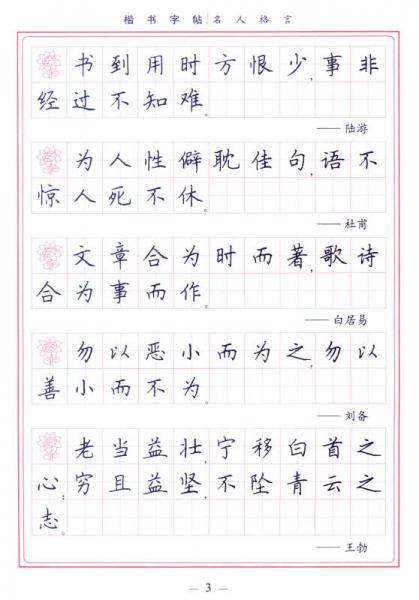 楷书字帖 | 名人格言
书到用时方恨少,事非
经过不知难。
—— 陆游
为人性僻耽佳句,语不
惊人死不休。
—— 杜甫
文章合为时而著,歌诗
合为事而作。
—— 白居易
勿以恶小而为之,勿以
善小而不为。
—— 刘备
老当益壮,宁移白首之
心;穷且益坚,不坠青云之
志。
—— 王勃
— 3 —